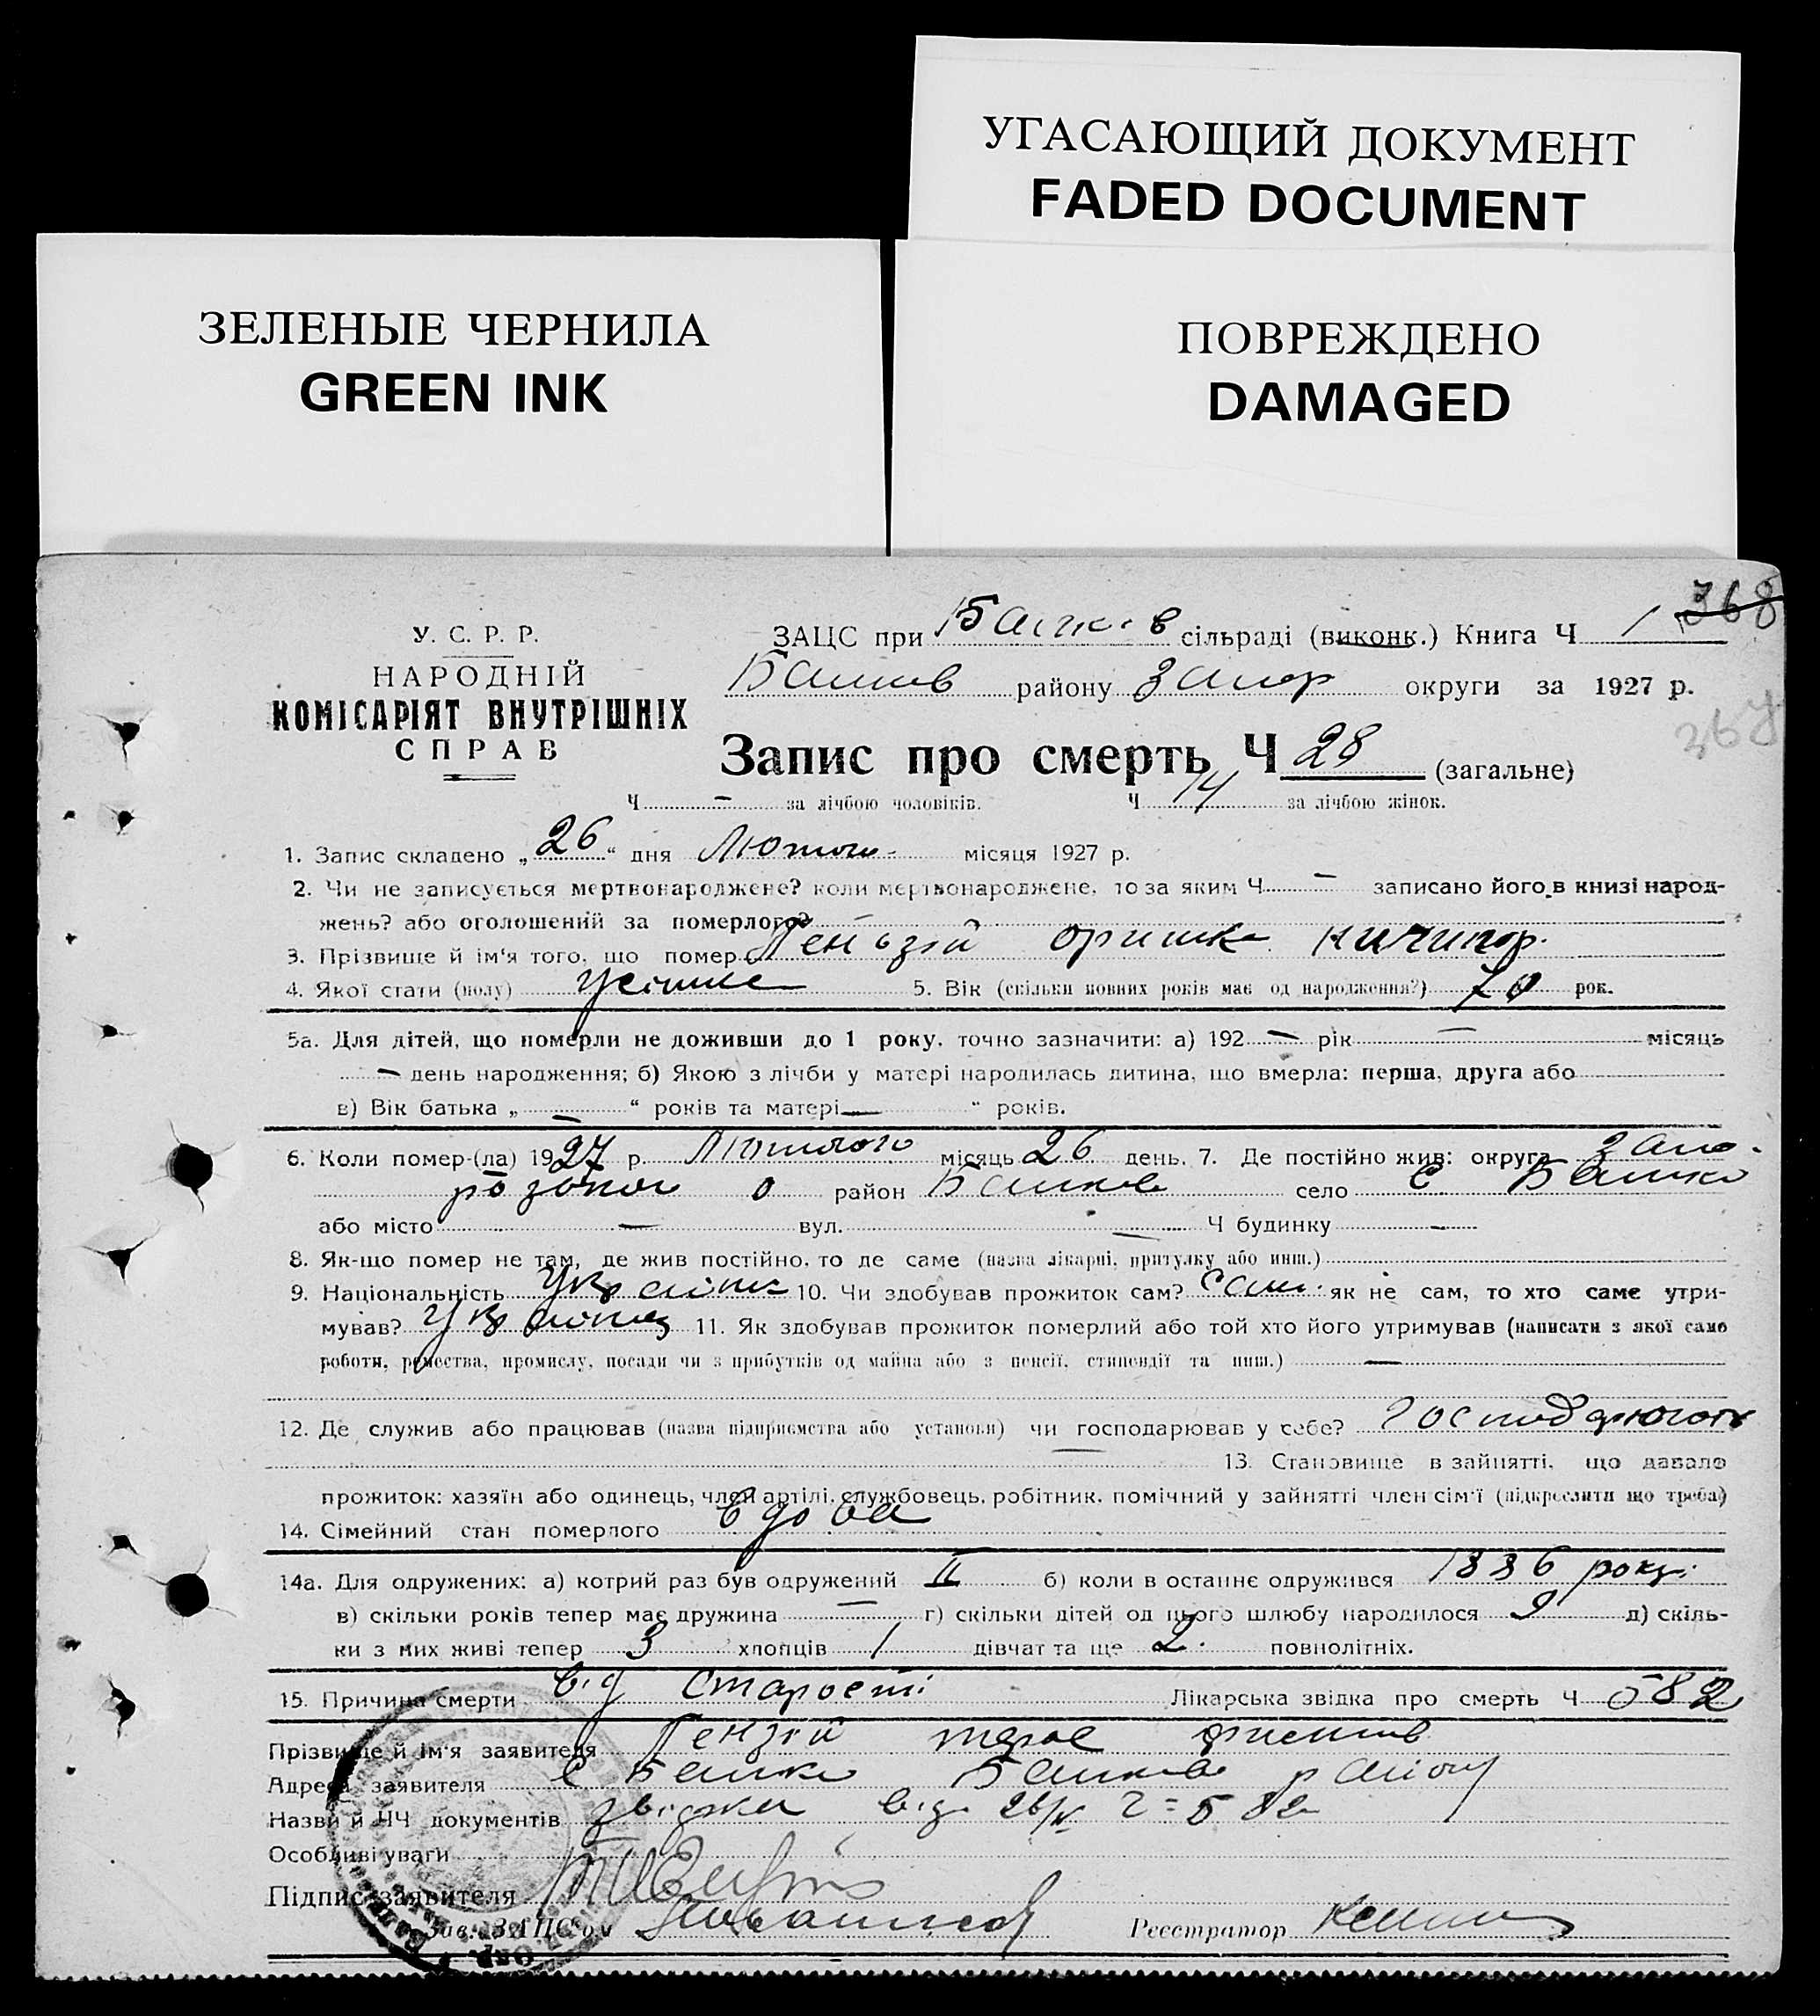 УГАСАЮЩИЙ ДОКУМЕНТ
FADED DOCUMENT
ЗЕЛЕНЫЕ ЧЕРНИЛА
GREEN INK
ПОВРЕЖДЕНО
DAMAGED
368
У. С. Р. Р.
НАРОДНІЙ
КОМІСАРІЯТ ВНУТРІШНІХ
СПРАВ
ЗАЦС при сільраді (виконк.) Книга Ч 1
району Запор округи за 1927 р.
367
Запис про смерть Ч 28 (загальне)
Ч — за лічбою чоловіків. Ч 14 за лічбою жінок.
1. Запис складено „26“ дня Лютого місяця 1927 р.
2. Чи не записується мертвонароджене? коли мертвонароджене, то за яким Ч — записано його в книзі народ-
жень? або оголошений за померлого? —
3. Прізвище й ім'я того, що помер Оришка Ничипор.
4. Якої стати (полу) 5. Вік (скільки повних років має од народження?) 70 рок.
5а. Для дітей, що померли не доживши до 1 року, точно зазначити: а) 192 — рік — місяць
— день народження; б) Якою з лічби у матері народилась дитина, що вмерла: перша, друга або
в) Вік батька „ — “ років та матері — “ років.
6. Коли помер-(ла) 1927 р. Лютого місяць 26 день. 7. Де постійно жив: округа Запо-
район село с
або місто — вул. — Ч будинку —
8. Як-що помер не там, де жив постійно, то де саме (назва лікарні, притулку або инш.)
9. Національність Українка 10. Чи здобував прожиток сам? Сам як не сам, то хто саме утри-
мував? 11. Як здобував прожиток померлий або той хто його утримував (написати з якої само
роботи, ремества, промислу, посади чи з прибутків од майна або з пенсії, стипендії та инш.) —
12. Де служив або працював (назва підприємства або установи) чи господарював у себе?
13. Становище в зайнятті, що давало
прожиток: хазяїн або одинець, член артілі, службовець, робітник, помічний у зайнятті член сім'ї (підкреслити що треба)
14. Сімейний стан померлого вдова
14а. Для одружених: а) котрий раз був одружений II б) коли в останнє одружився 1886 року.
в) скільки років тепер має дружина — г) скільки дітей од цього шлюбу народилося 9 д) скіль-
ки з них живі тепер 3 хлопців 1 дівчат та ще 2. повнолітніх.
15. Причина смерти від старости Лікарська звідка про смерть Ч 582
Прізвище й ім'я заявителя
Адреса заявителя с району
Назви й ЧЧ документів звідка від 26/II Ч=582
Особливі уваги
Підпис заявителя
Зав. ЗАЦС'ом Реєстратор